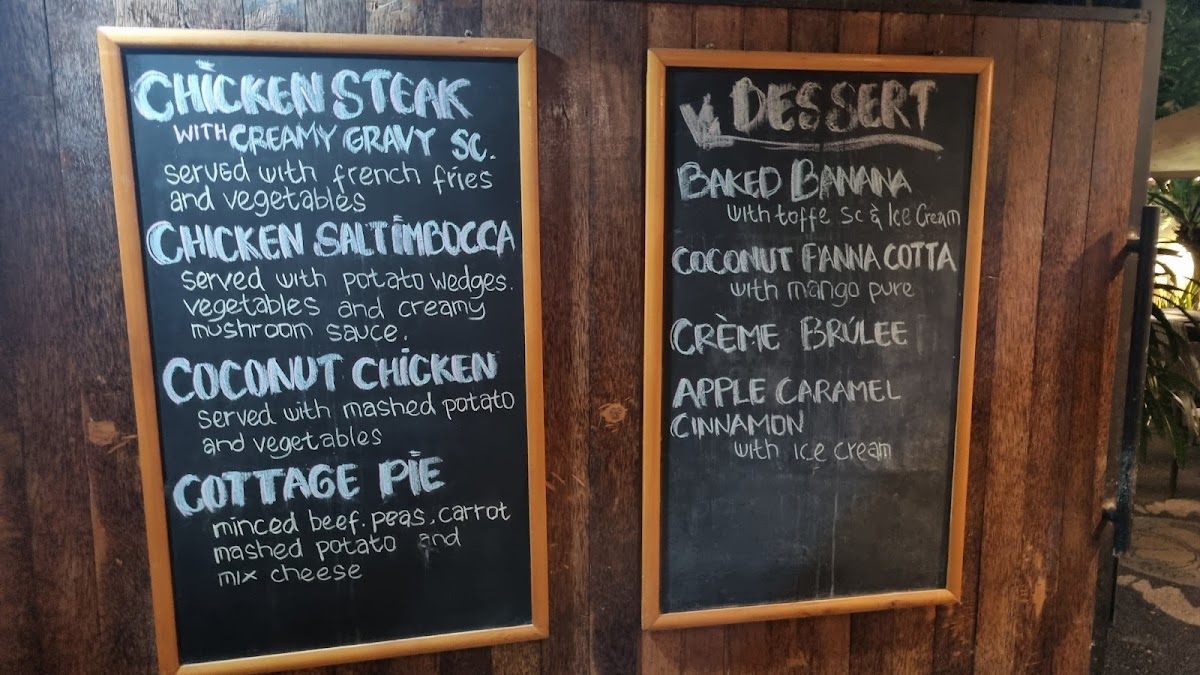 CHICKEN STEAK
WITH CREAMY GRAVY SC.
served with french fries
and vegetables
CHICKEN SALTIMBOCCA
served with potato wedges.
vegetables and creamy
mushroom sauce.
COCONUT CHICKEN
served with mashed potato
and vegetables
COTTAGE PIE
minced beef. peas, carrot
mashed potato and
mix cheese
DESSERT
BAKED BANANA
with toffe sc & Ice Cream
COCONUT PANNA COTTA
with mango pure
CRÈME BRÚLEE
APPLE CARAMEL
CINNAMON
with ice cream